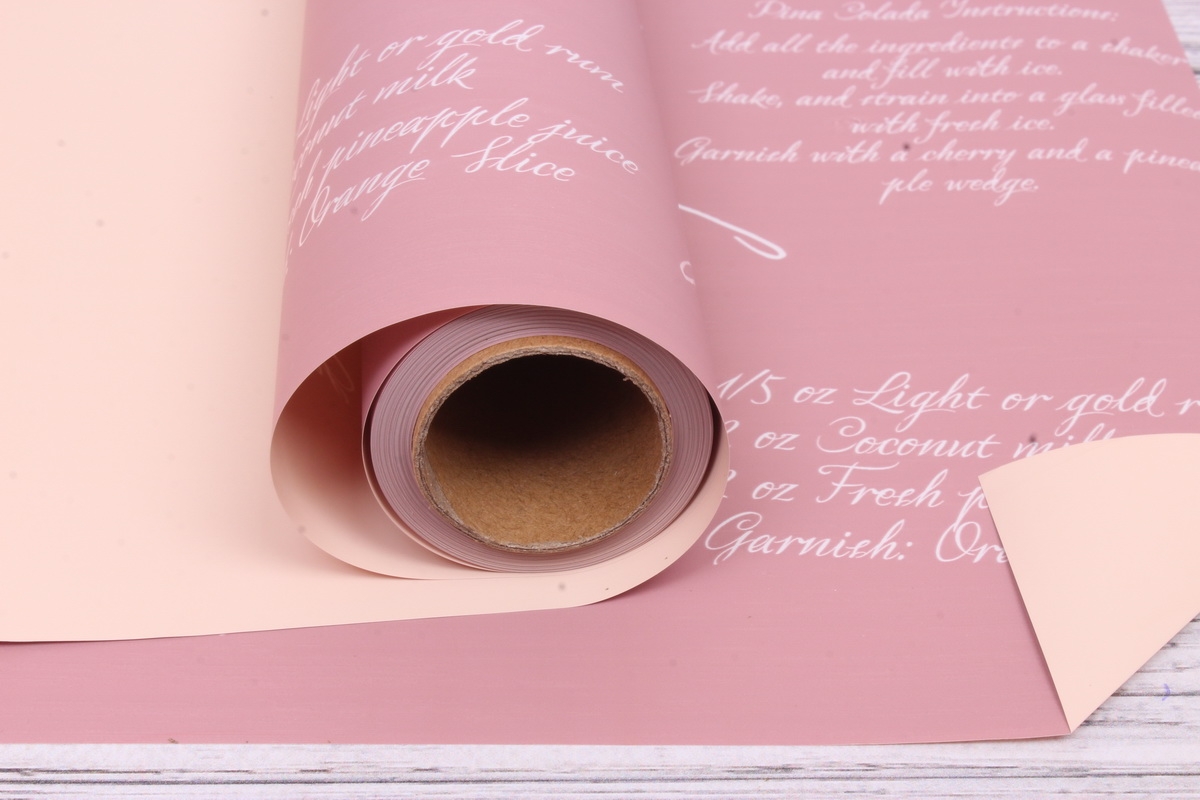 Light or gold rum
milk
pineapple juice
Orange Slice
Pina Colada Instructions:
Add all the ingredients to a shaker
and fill with ice.
Shake, and strain into a glass fille
with fresh ice.
Garnish with a cherry and a pinea
ple wedge.
1/5 oz Light or gold r
oz Coconut milk
oz Fresh p
Garnish: Ora